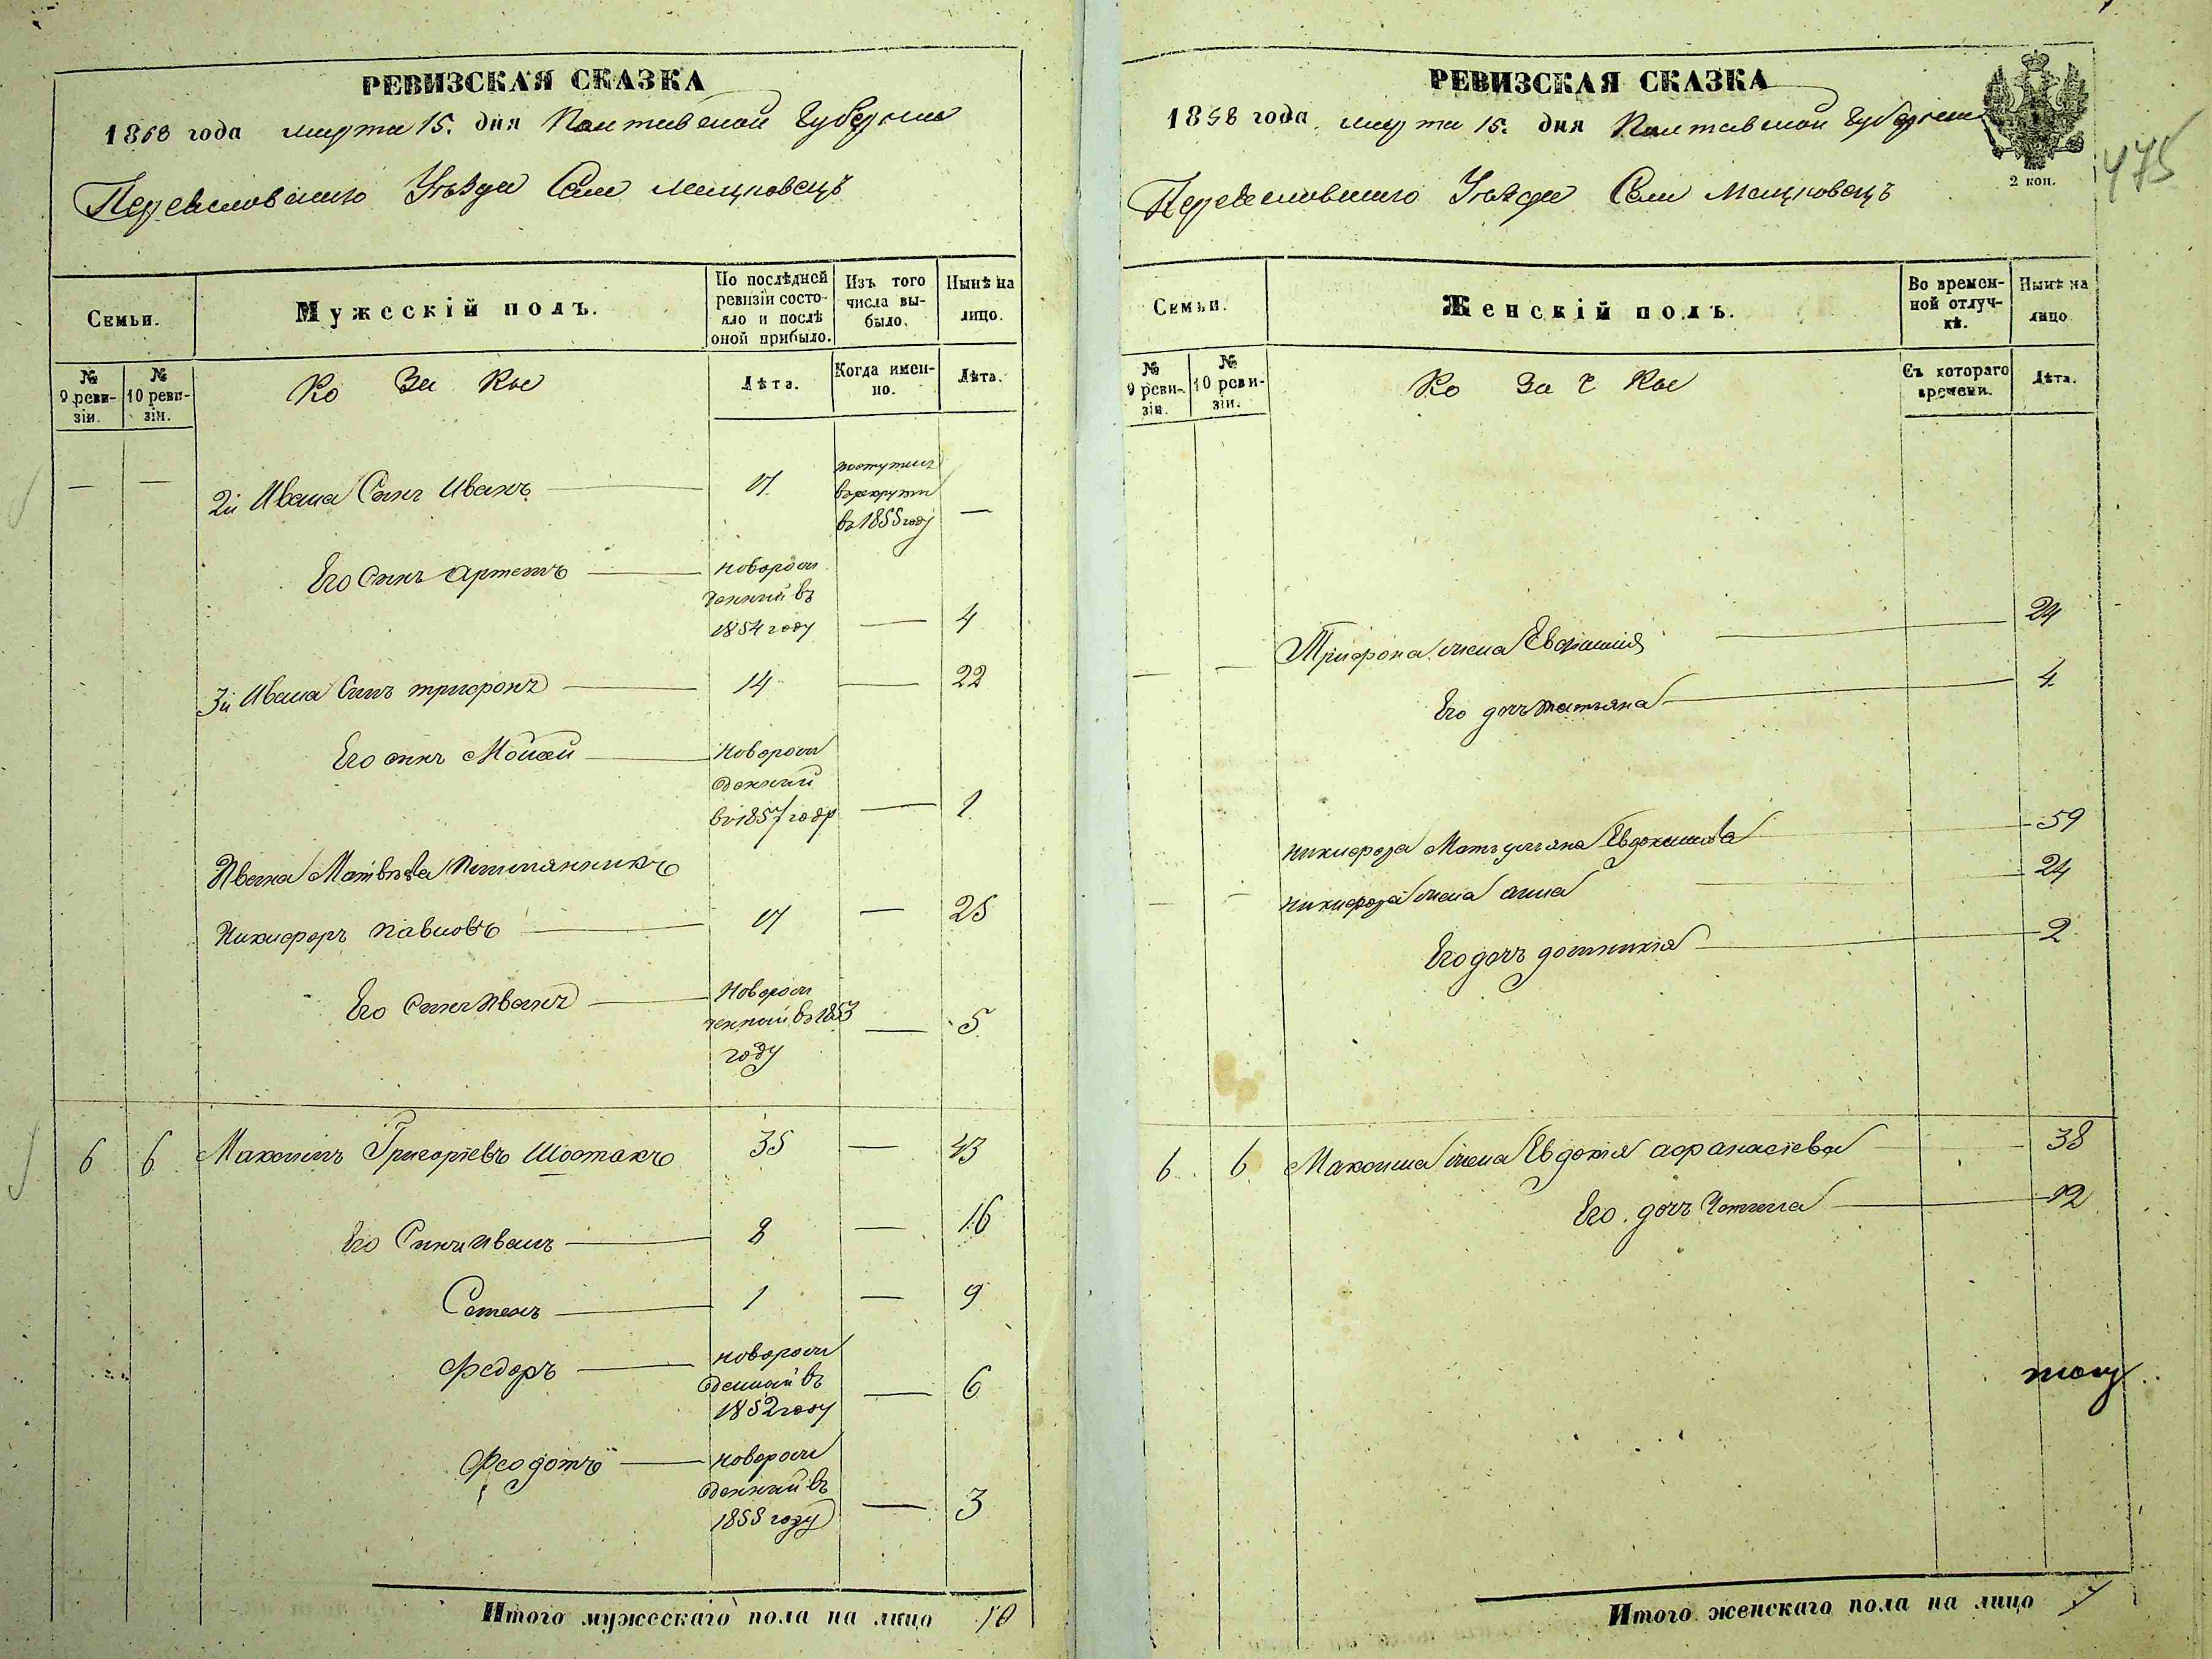 РЕВИЗСКАЯ СКАЗКА
1858 года марта 15. дня Полтавской Губернии
Переяславского Уѣзда Села Мацковецъ
Семьи.
Мужескій полъ.
По послѣдней ревизіи состояло и послѣ оной прибыло.
Изъ того числа выбыло.
Нынѣ на лицо.
№ 9 ревизіи.
№ 10 ревизіи.
Ко За Кы
Лѣта.
Когда именно.
Лѣта.
— — 2й Ивана Синъ Иванъ 17 поступил в рекруты въ 1855 году —
Его Синъ Артемъ новорожденный въ 1854 году — 4
3й Ивана Синъ трифонъ 14 — 22
Его синъ Мойсей новорожденный въ 1857 году — 1
Ивана Матвѣева Племянникъ
Никифоръ Павловъ 17 — 25
Его Синъ Иванъ Новорожденный въ 1853 году — 5
6 6 Максимъ Григоріевъ Шостакъ 35 — 43
Его Синъ Иванъ 8 — 16
Семенъ 1 — 9
Федоръ новорожденный въ 1852 году — 6
Феодотъ новорожденный въ 1855 году — 3
Итого мужескаго пола на лицо 10
РЕВИЗСКАЯ СКАЗКА
1858 года марта 15. дня Полтавской Губернии
Переяславского Уѣзда Села Мацковецъ
2 коп.
475
Семьи.
Женскій полъ.
Во временной отлучкѣ.
Нынѣ на лицо
№ 9 ревизіи.
№ 10 ревизіи.
Ко За ч Кы
Съ котораго времени.
Лѣта.
— — Трифона жена Евфимия 24
Его дочь татьяна 4
никифора Мать уляна Евдокимова 59
— — никифора жена анна 24
Его дочь домникія 2
6 6 Максима жена Евдокія афанасіева 38
Его дочь 12
Итого женскаго пола на лицо 7